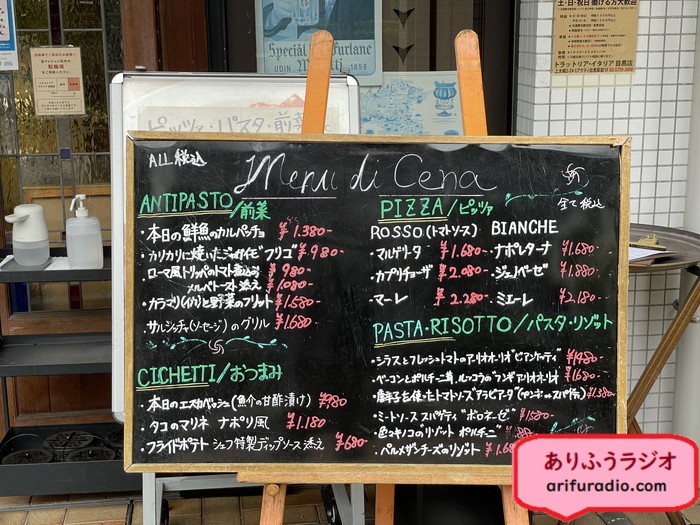 Special Macfarlane
1859
駐輪場
土・日・祝日 働ける方大歓迎
トラットリア・イタリア 目黒店
ピッツァ・パスタ・前菜
ALL 税込
Menu di Cena
全て税込
ANTIPASTO/前菜
・本日の鮮魚のカルパッチョ ¥1.380-
・カリカリに焼いたジャガイモ"フリコ" ¥980-
・ローマ風トリッパのトマト煮込み ¥980-
メルバトースト添え ¥1,080-
・カラマリ(イカ)と野菜のフリット ¥1.580-
・サルシッチャ(ソーセージ)のグリル ¥1.680-
CICHETTI/おつまみ
・本日のエスカベッシュ(魚介の甘酢漬け) ¥980
・タコのマリネ ナポリ風 ¥1.180-
・フライドポテト シェフ特製ディップソース添え ¥680-
PIZZA/ピッツァ
ROSSO(トマトソース) BIANCHE
・マルゲリータ ¥1.680- ・ナポレターナ ¥1.680-
・カプリチョーザ ¥2.080- ・ジェノベーゼ ¥1.880-
・マーレ ¥2.280- ・ミエーレ ¥2.180-
PASTA・RISOTTO/パスタ・リゾット
・シラスとフレッシュトマトのアーリオオーリオ"ビアンケッティ" ¥1480-
・ベーコンとポルチーニ茸、ルッコラの"フンギアーリオオーリオ ¥1.680-
¥1.380-
・ミートソース スパゲティ"ボロネーゼ" ¥1.580-
・色々キノコのリゾット ポルチーニ
・パルメザンチーズのリゾット
ありふうラジオ
arifuradio.com